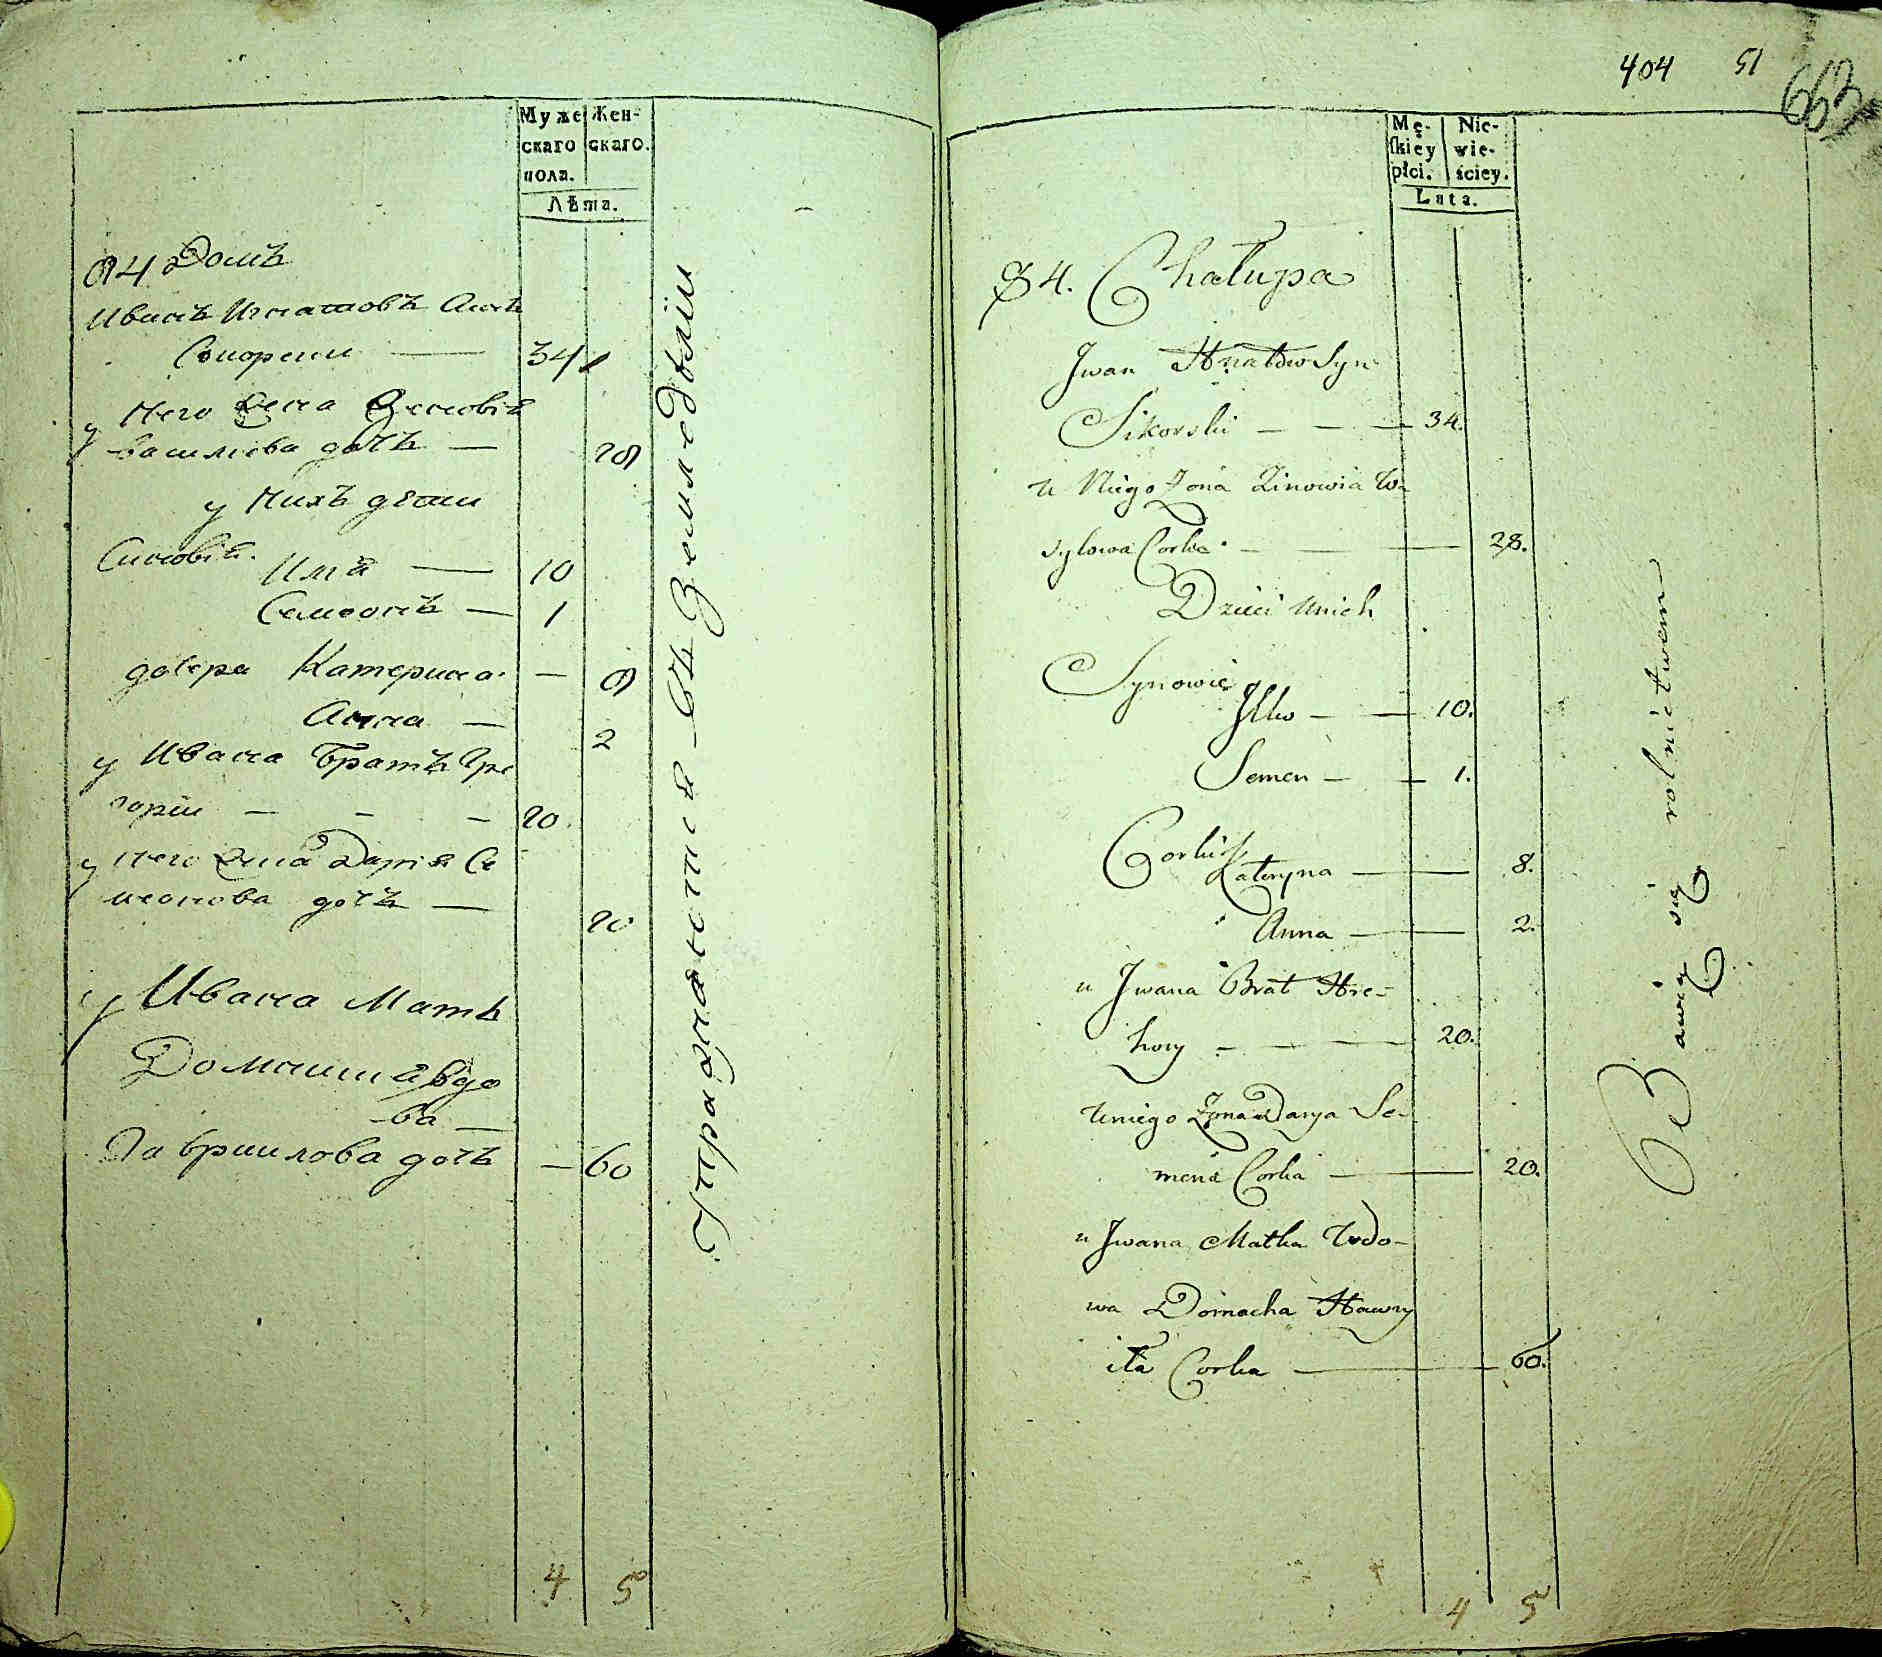 Муже Жен-
скаго скаго.
пола.
Лѣта.
84 Домъ
Иванъ Игнатовъ Синъ
Сикорски — 34
у Него Жена Зеновія
василіева дочь — 28
у Нихъ дѣти
Синовія. Илія — 10
Семіонъ — 1
дочери Катерина — 8
Анна — 2
у Ивана Братъ Гри
горіи — — — 20
у Него Жена Дарія Се
меонова дочь — 20
у Ивана Мать
Домникія вдо
ва —
Гавриилова дочь — 60
4 5
Упражняются въ Земледѣліи
404 51
663
Mę- Nie-
skiey wie-
płci. ściey.
Lata.
84. Chałupa
Jwan Hnatów Syn
Sikorski — — — 34.
u Niego Żona Zinowia Wa
sylowa Corka — — — 28.
Dzieci u nich
Synowie
Jlko — — 10.
Semen — — 1.
Corki
Kateryna — — 8.
Anna — — 2.
u Jwana Brat Hre-
hory — — — 20.
U niego Żona Darya Se-
mena Corka — — 20.
u Jwana Matka Wdo-
wa Domacha Hawry
iła Corka — — 60.
4 5
Bawią się rolnictwem